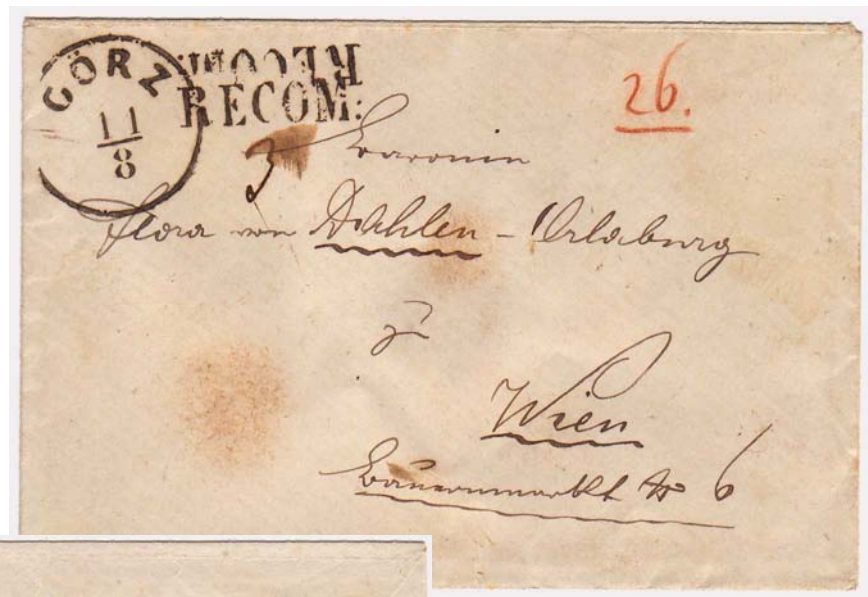 GÖRZ
11
8
RECOM:
RECOM:
26.
3
Baronin
Flora von Dahlen - Orlaburg
zu
Wien
Bauernmarkt № 6